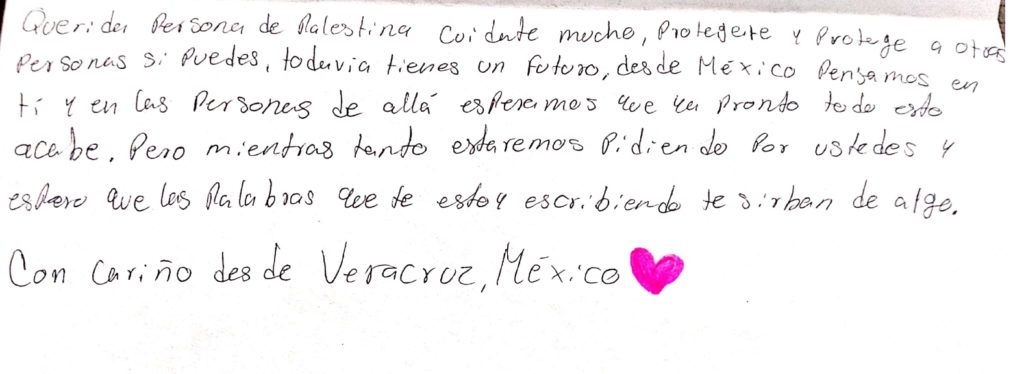 Querida Persona de Palestina Cuidate mucho, Protegete y Protege a otras
Personas si Puedes, todavia tienes un futuro, desde México Pensamos en
ti y en las Personas de allá esperemos que ya pronto todo esto
acabe. Pero mientras tanto estaremos Pidiendo Por ustedes y
espero que las Palabras que te estoy escribiendo te sirban de algo.
Con cariño desde Veracruz, México